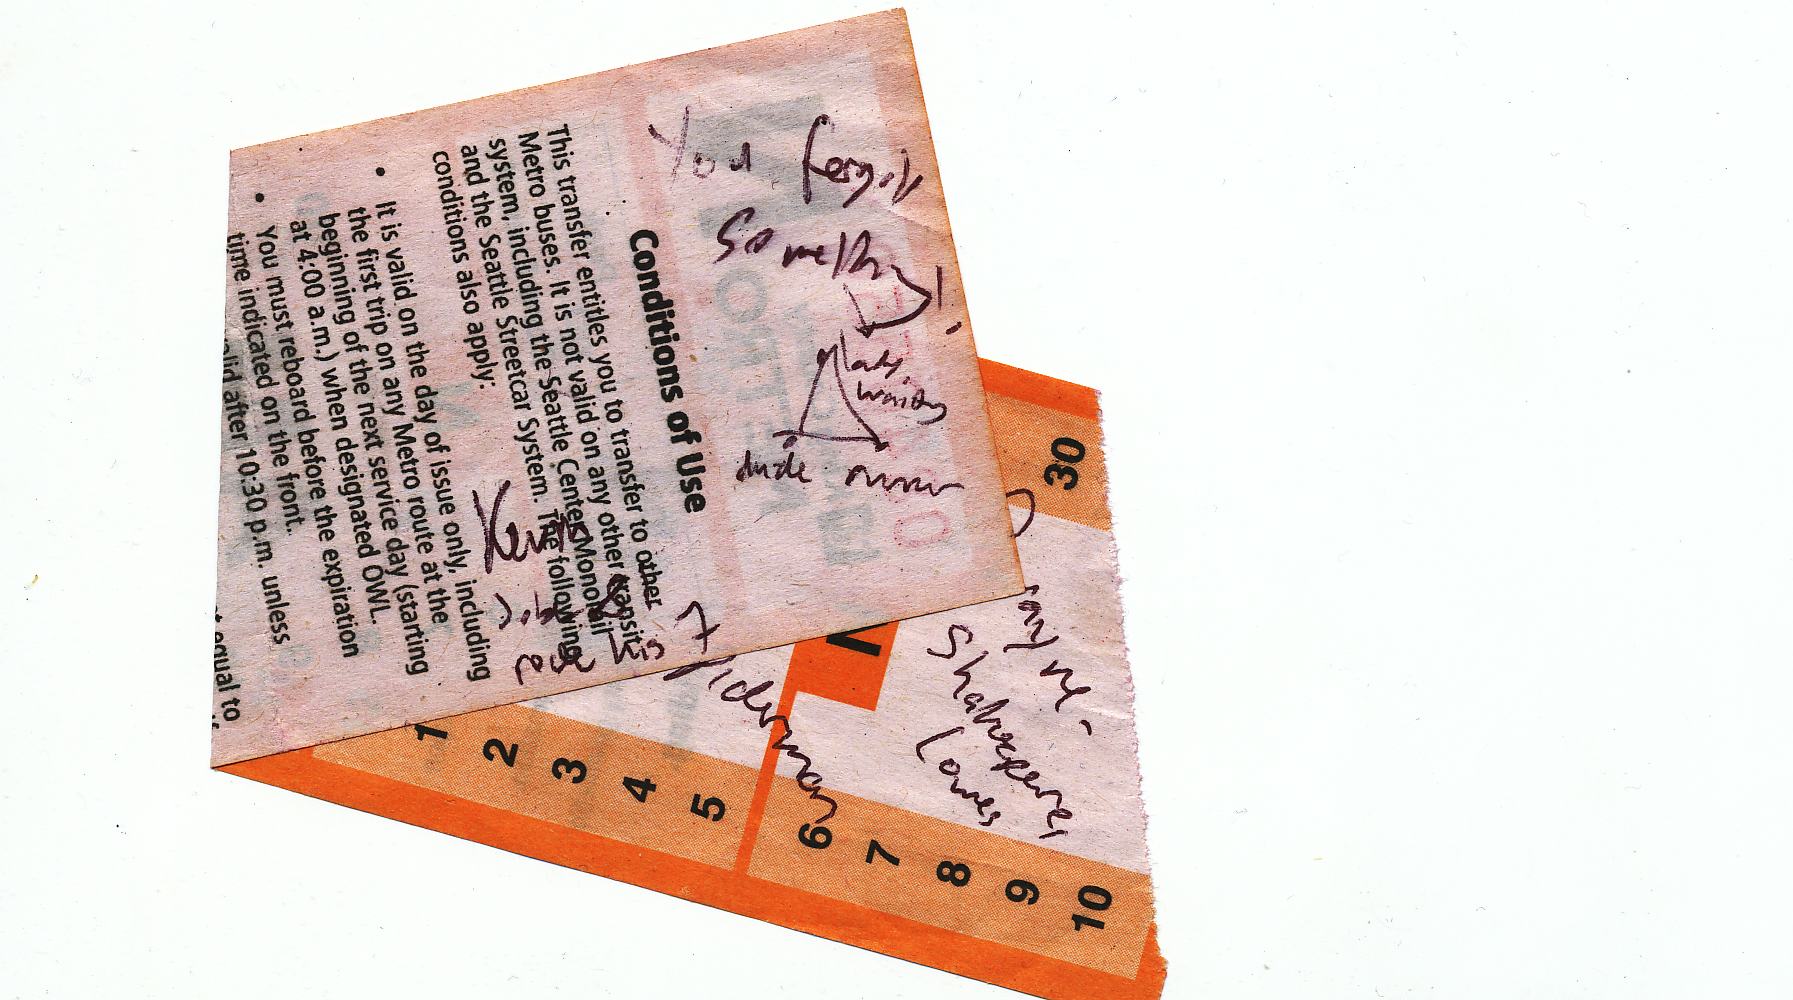 You forgot
something!
lady
waiting
dude
Conditions of Use
This transfer entitles you to transfer to other
Metro buses. It is not valid on any other transit
system, including the Seattle Center Monorail
and the Seattle Streetcar System. The following
conditions also apply:
• It is valid on the day of issue only, including
the first trip on any Metro route at the
beginning of the next service day (starting
at 4:00 a.m.) when designated OWL.
• You must reboard before the expiration
time indicated on the front.
after 10:30 p.m. unless
equal to
is
Spiderman
Shakespeare
Loves
30
1
2
3
4
5
6
7
8
9
10